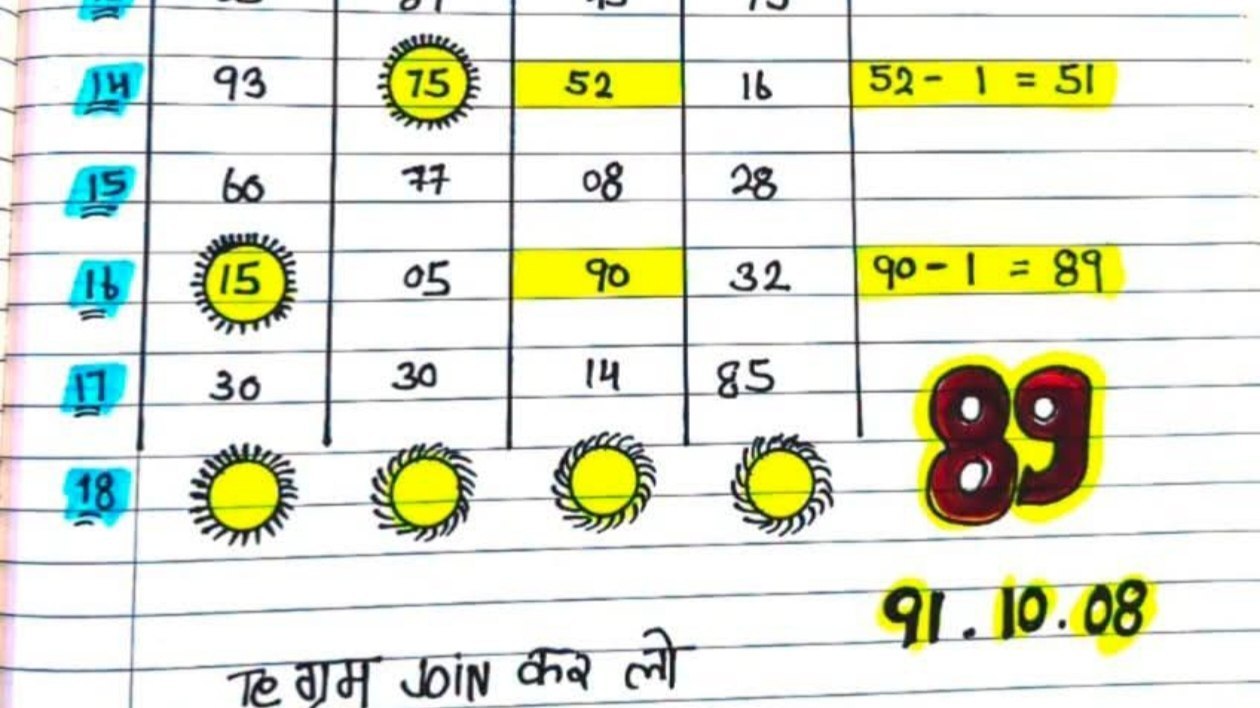 14 93 75 52 16 52 - 1 = 51
15 60 77 08 28
16 15 05 90 32 90 - 1 = 89
17 30 30 14 85
18 89
91 . 10 . 08
Teग्राम JOIN कर लो